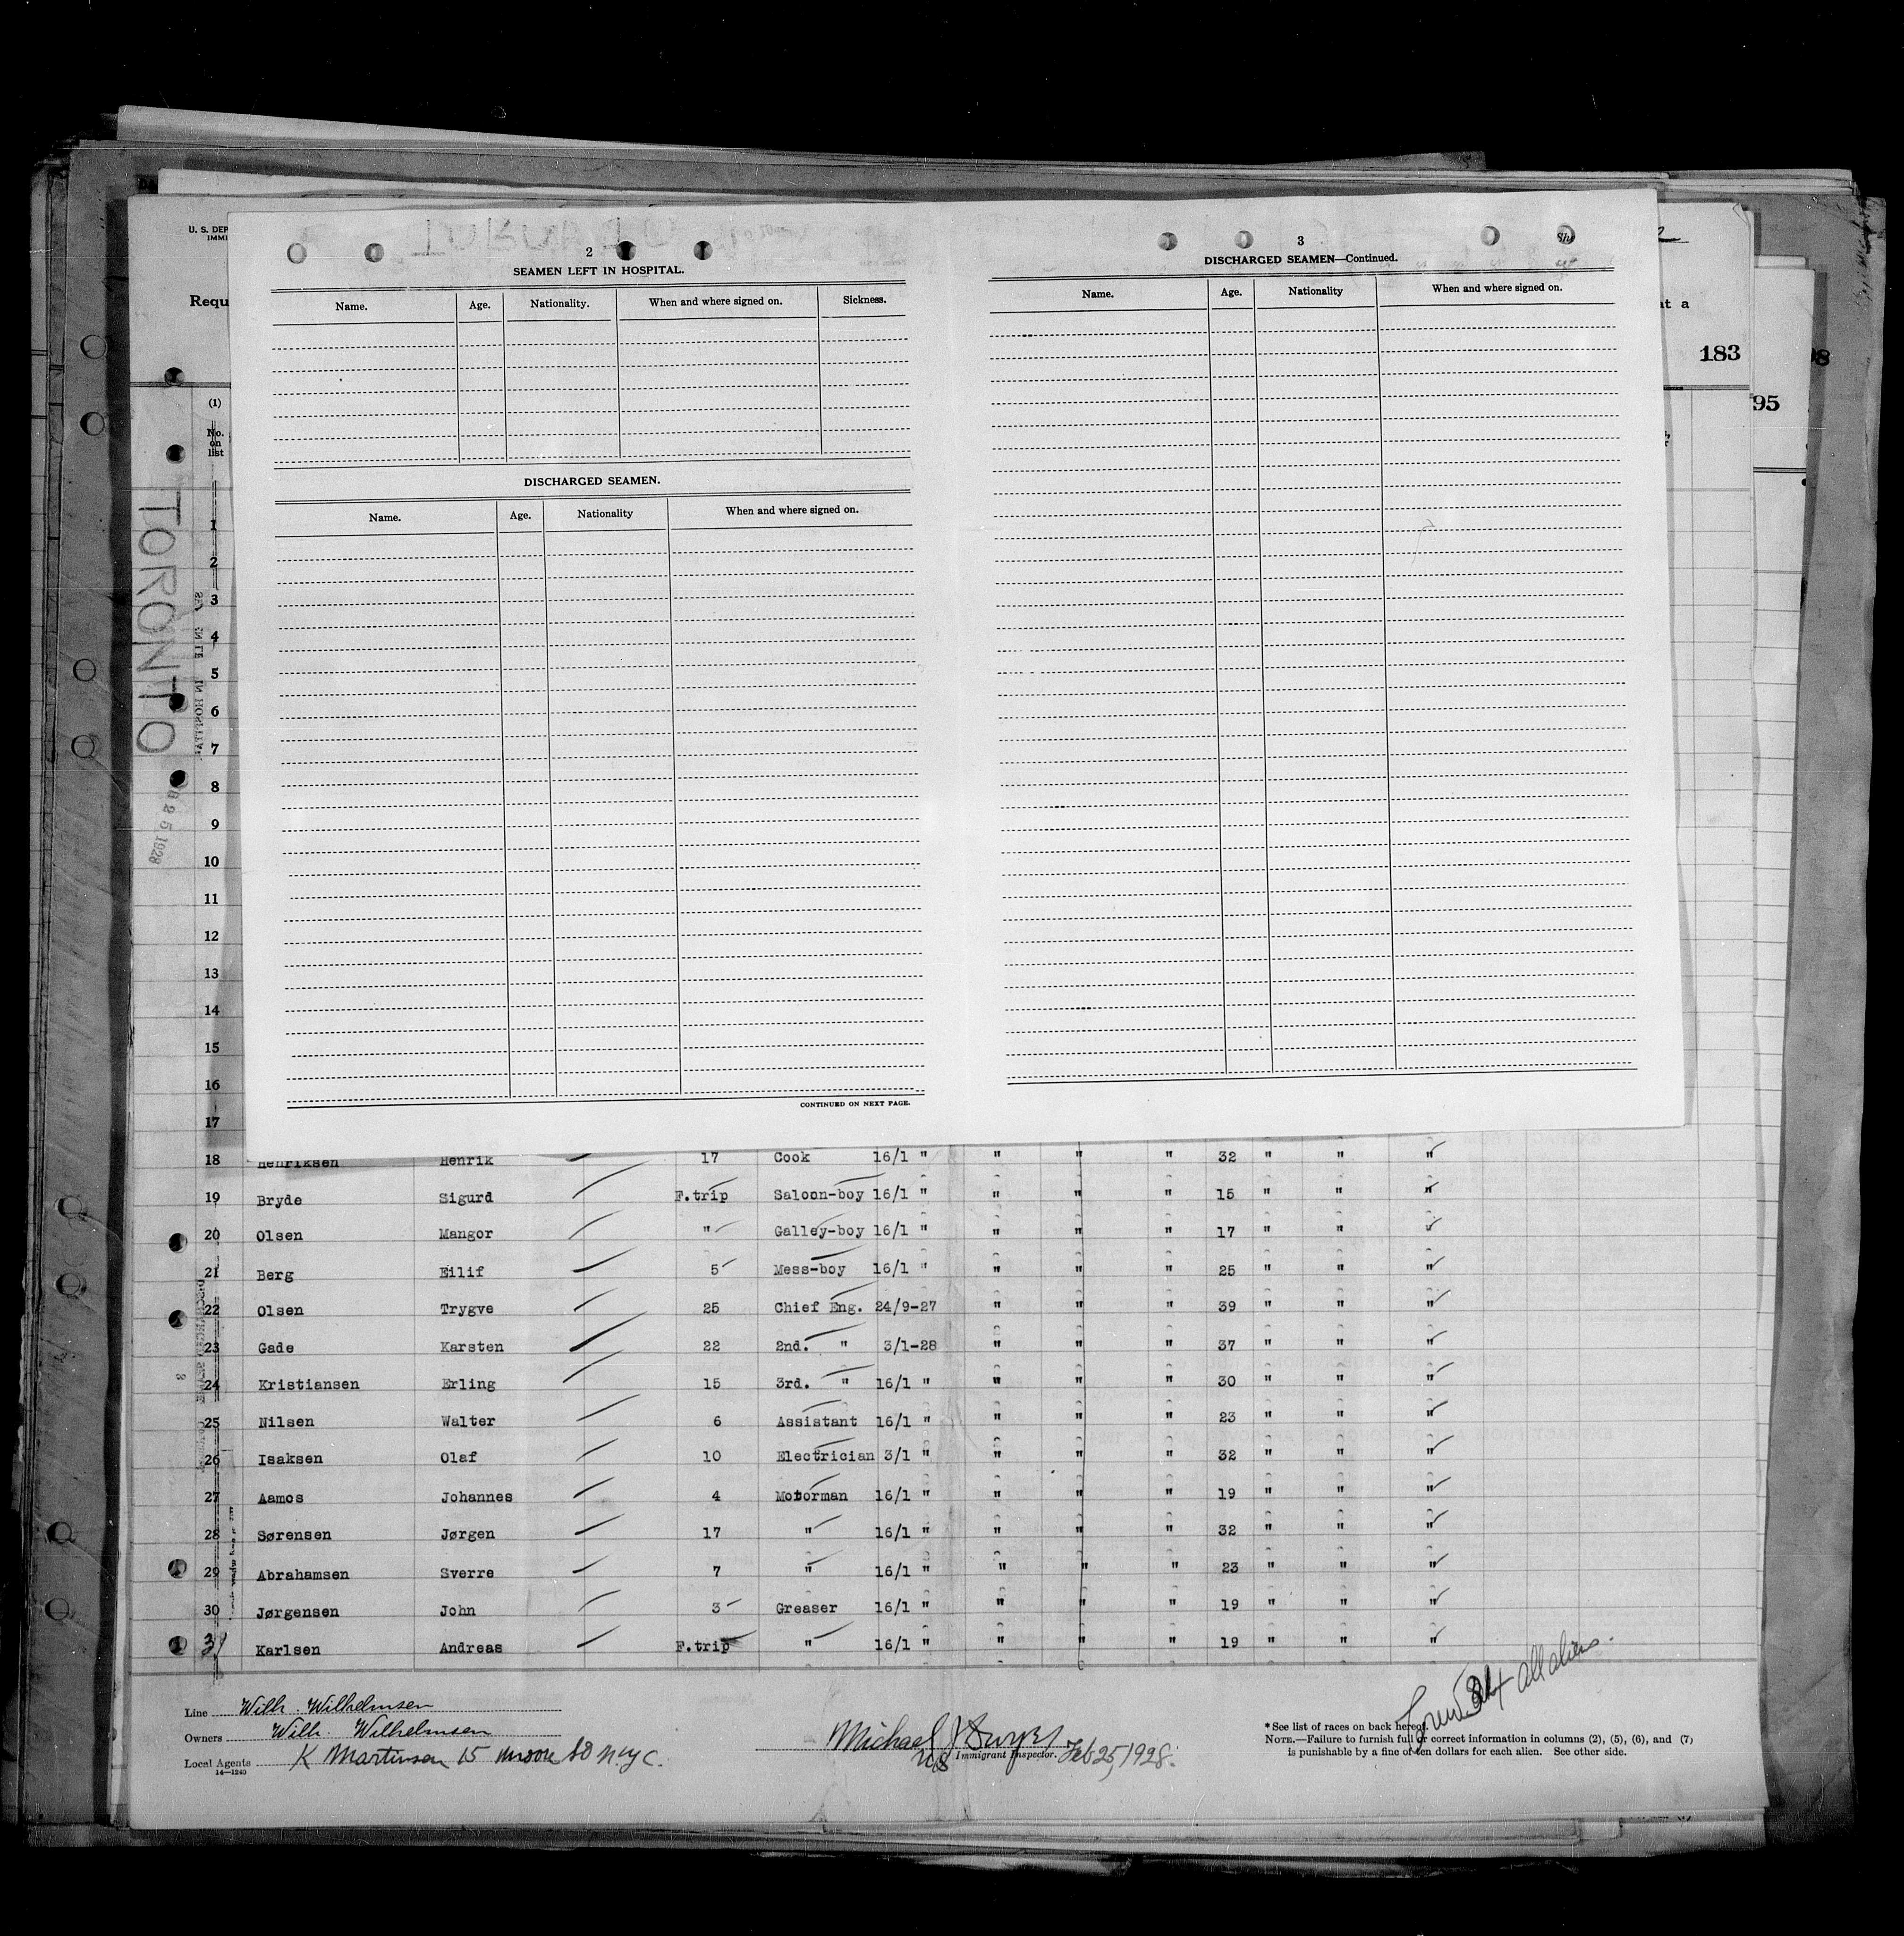 U. S. DEP
IMMI
Requ
at a
183
98
95
2
SEAMEN LEFT IN HOSPITAL.
Name. Age. Nationality. When and where signed on. Sickness.
DISCHARGED SEAMEN.
Name. Age. Nationality When and where signed on.
CONTINUED ON NEXT PAGE.
3
DISCHARGED SEAMEN—Continued.
Name. Age. Nationality When and where signed on.
(1)
No.
on
list
TORONTO
25 1928
1
2
3
4
5
6
7
8
9
10
11
12
13
14
15
16
17
18 Henriksen Henrik 17 Cook 16/1 " " " " 32 " " "
19 Bryde Sigurd F.trip Saloon-boy 16/1 " " " " 15 " " "
20 Olsen Mangor " Galley-boy 16/1 " " " " 17 " " "
21 Berg Eilif 5 Mess-boy 16/1 " " " " 25 " " "
22 Olsen Trygve 25 Chief Eng. 24/9-27 " " " 39 " " "
23 Gade Karsten 22 2nd. " 3/1-28 " " " 37 " " "
24 Kristiansen Erling 15 3rd. " 16/1 " " " " 30 " " "
25 Nilsen Walter 6 Assistant 16/1 " " " " 23 " " "
26 Isaksen Olaf 10 Electrician 3/1 " " " " 32 " " "
27 Aamos Johannes 4 Motorman 16/1 " " " " 19 " " "
28 Sørensen Jørgen 17 " 16/1 " " " " 32 " " "
29 Abrahamsen Sverre 7 " 16/1 " " " " 23 " " "
30 Jørgensen John 3 Greaser 16/1 " " " " 19 " " "
31 Karlsen Andreas F.trip " 16/1 " " " " 19 " " "
Line Wilh. Wilhelmsen
Owners Wilh. Wilhelmsen
Local Agents K Martinsen 15 Moore St N.Y.C.
14—1240
Michael J Dwyer
US Immigrant Inspector. Feb 25, 1928.
all aliens.
* See list of races on back hereof.
NOTE.—Failure to furnish full or correct information in columns (2), (5), (6), and (7)
is punishable by a fine of ten dollars for each alien. See other side.